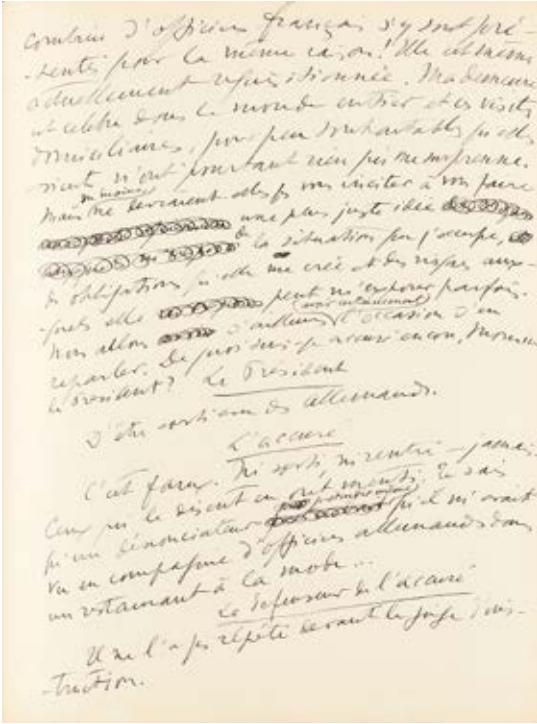 combien d'officiers français s'y sont pré-
-sentés pour la même raison! Elle est même
actuellement réquisitionnée. Ma demeure
est célèbre dans le monde entier et ces visites
domiciliaires, pour peu souhaitables qu'elles
soient n'ont pourtant rien qui me surprenne.
Mais ne devraient-elles pas vous inciter à vous faire
du moins
une plus juste idée
de la situation que j'occupe,
des obligations qu'elle me crée et des risques aux-
-quels elle peut m'exposer parfois.
Nous allons d'ailleurs avoir certainement l'occasion d'en
reparler. De quoi suis-je accusé encore, Monsieur
le Président? Le Président
D'être sorti avec des allemands.
L'accusé
C'est faux. Ni sorti, ni rentré – jamais.
Ceux qui le disent en ont menti. Je sais
qu'un dénonciateur qu'il m'avait
vu en compagnie d'officiers allemands dans
un restaurant à la mode...
Le défenseur de l'accusé
Il ne l'a pas répété devant le juge d'ins-
-truction.